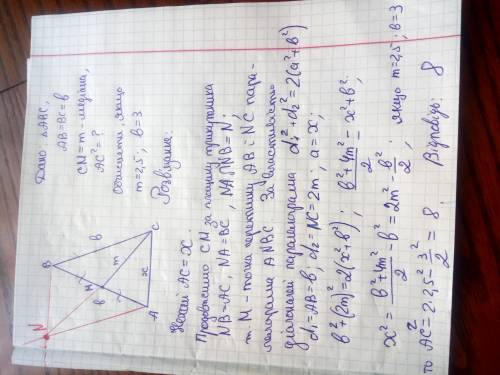 Дано: △ABC,
AB=BC=b
CM=m - медіана,
AC²=?
Обчислити, якщо
m=2,5; b=3
N
B
b
M
b
m
A
x
C
Розвязання:
Нехай AC=x.
Продовжимо CM за площину трикутника
NB=AC, NA=BC, NA∩NB=N;
т. M - точка перетину AB і NC пара-
лелограма ANBC. За властивістю
діагоналей паралелограма d₁²+d₂²=2(a²+b²)
d₁=AB=b; d₂=NC=2m; a=x;
b²+(2m)²=2(x²+b²); (b²+4m²)/2=x²+b²;
x²=(b²+4m²)/2-b²=2m²-b²/2; якщо m=2,5; b=3
то AC²=2·2,5²-3²/2=8. Відповідь: 8